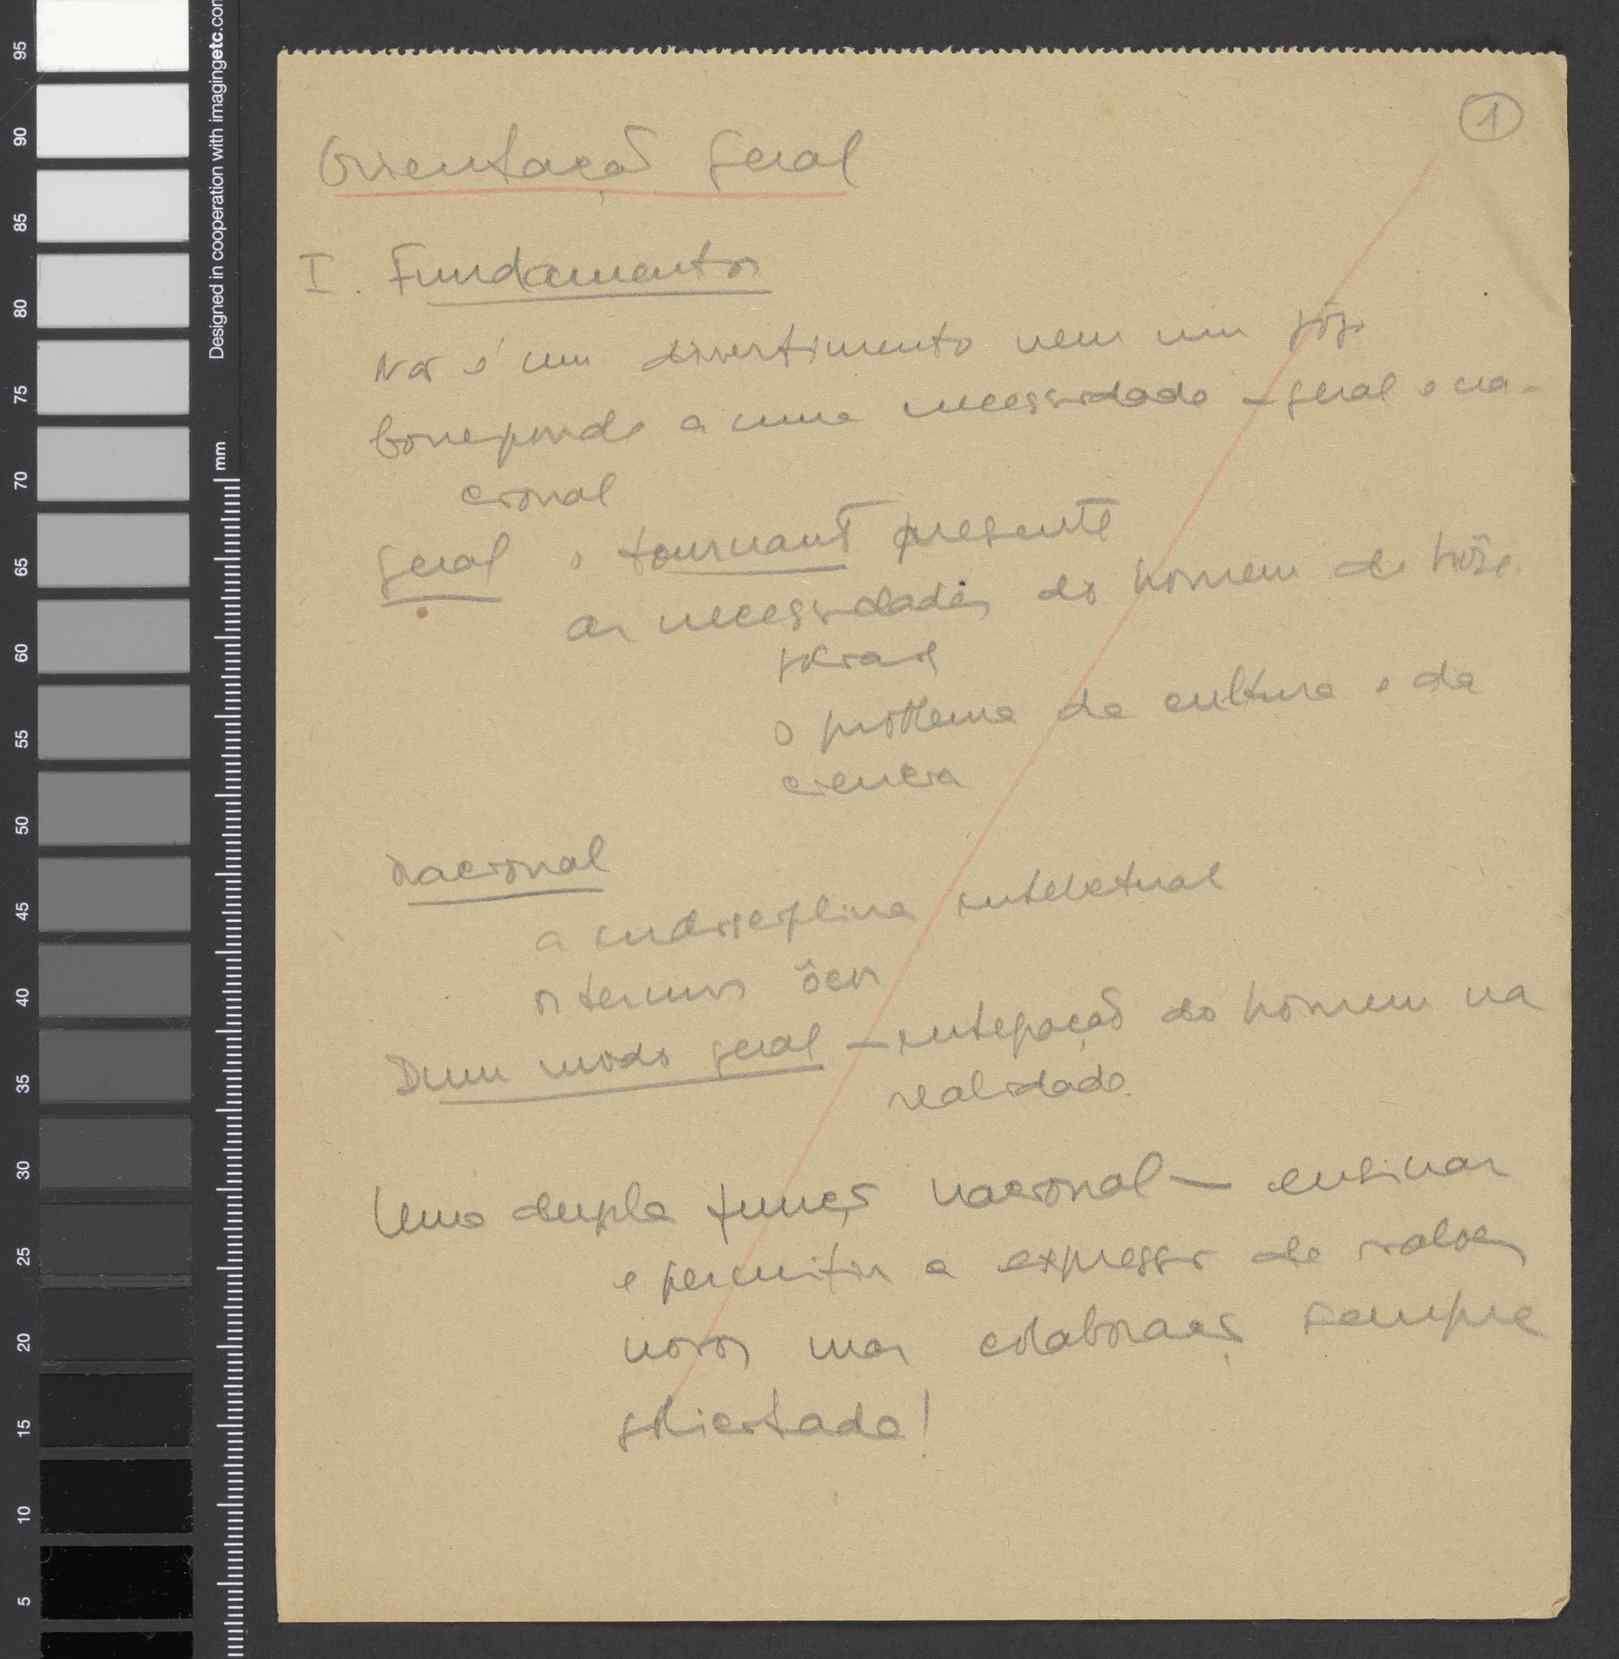 1
Orientação geral
I. Fundamentos
Não é um divertimento nem um jôgo
Corresponde a uma necessidade — geral e na-
cional
geral o tournant presente
as necessidades do homem de hôje
sociais
o problema da cultura e da
ciencia
Nacional
a indisciplina intelectual
os termos ôcos
Dum modo geral — integração do homem na
realidade.
Uma dupla função nacional — ensinar
e permitir a expressão de valores
novos mas colaboração sempre
orientada!
95
90
85
80
75
70
65
60
55
50
45
40
35
30
25
20
15
10
5
mm
Designed in cooperation with imagingetc.com